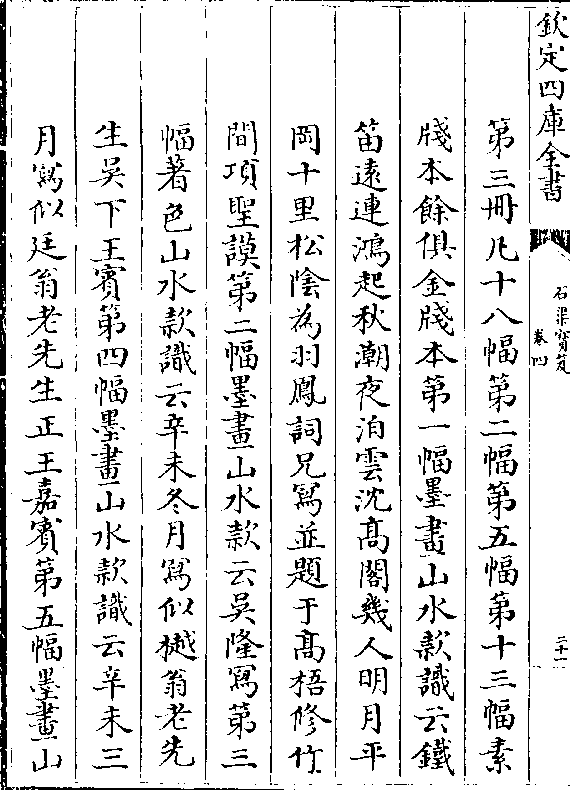 欽定四庫全書
石渠寶笈
卷四
二十一
第三冊凡十八幅第二幅第五幅第十三幅素
牋本餘俱金牋本第一幅墨畫山水款識云鐵
笛遠連鴻起秋潮夜泊雲沈髙閣幾人明月平
岡十里松陰為羽鳳詞兄寫並題于髙梧修竹
間項聖謨第二幅墨畫山水款云吳隆寫第三
幅著色山水款識云辛未冬月寫似樾翁老先
生吳下王賓第四幅墨畫山水款識云辛未三
月寫似廷翁老先生正王嘉賓第五幅墨畫山